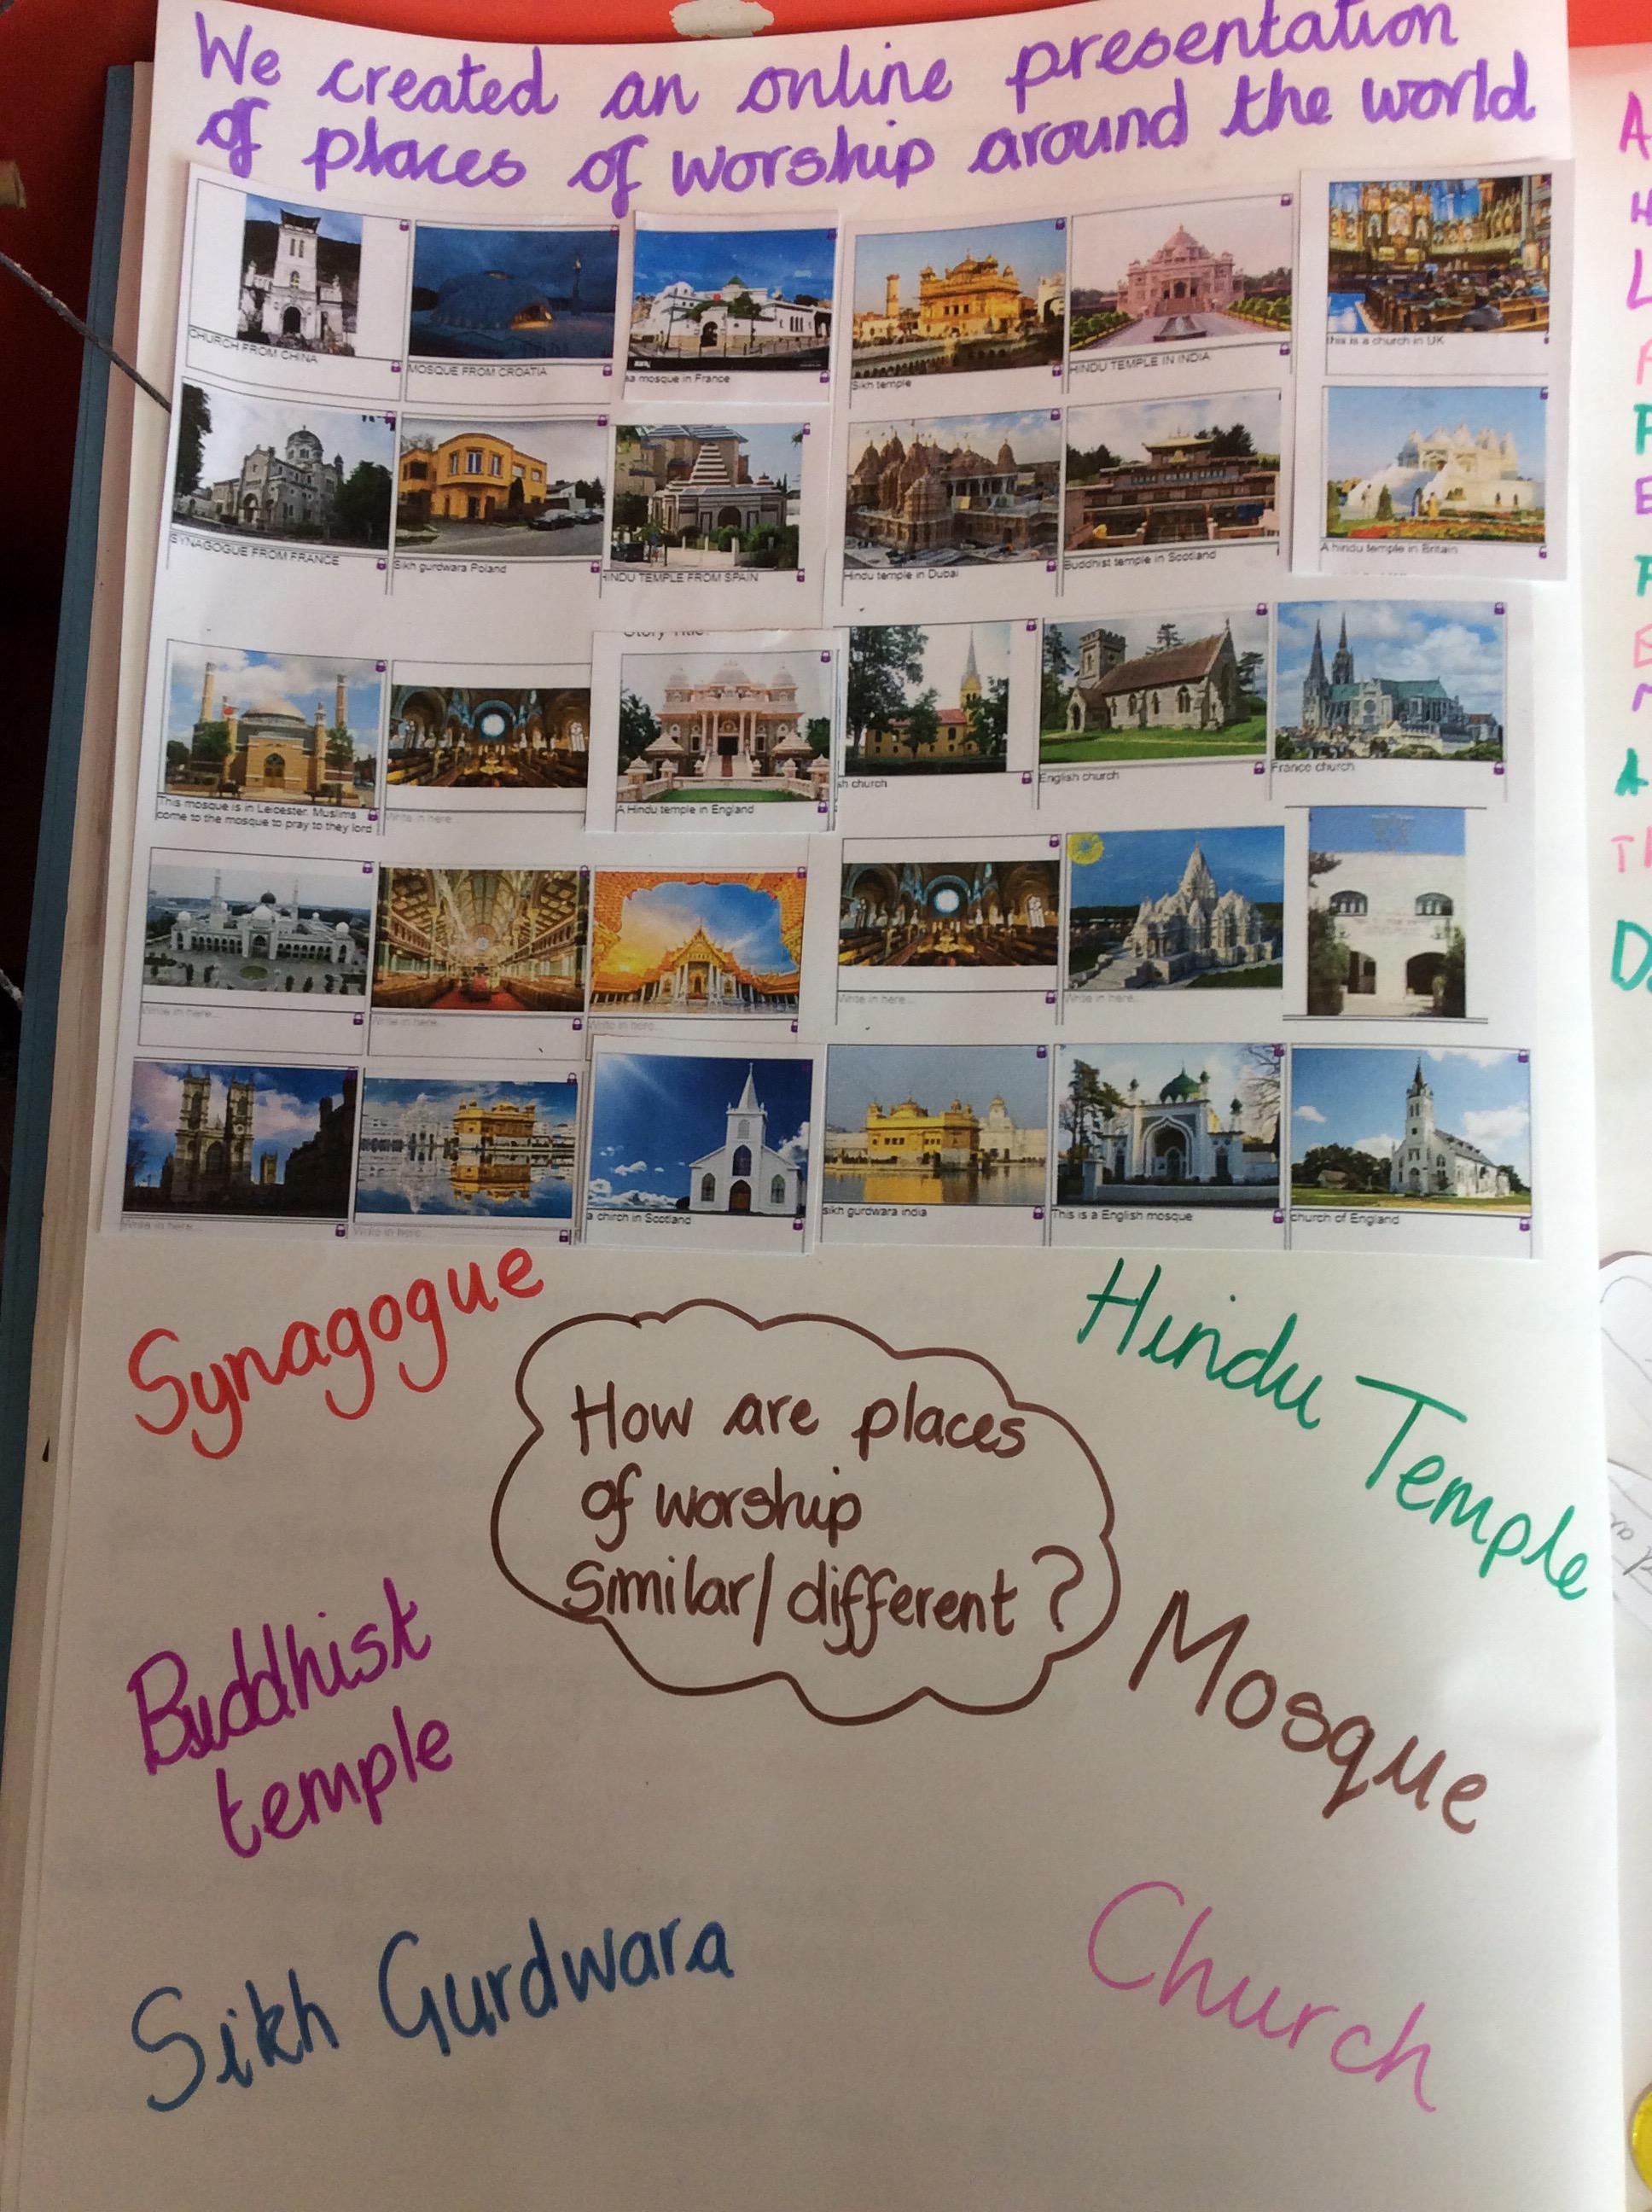 We created an online presentation
of places of worship around the world
CHURCH FROM CHINA
MOSQUE FROM CROATIA
a mosque in France
Sikh temple
HINDU TEMPLE IN INDIA
this is a church in UK
SYNAGOGUE FROM FRANCE
Sikh gurdwara Poland
HINDU TEMPLE FROM SPAIN
Hindu temple in Dubai
Buddhist temple in Scotland
A hindu temple in Britain
Story Title:
This mosque is in Leicester. Muslims
come to the mosque to pray to they lord
Write in here
A Hindu temple in England
sh church
English church
France church
Write in here...
Write in here...
Write in here...
Write in here...
Write in here...
Write in here...
Write in here...
a chirch in Scotland
sikh gurdwara india
This is a English mosque
church of England
Synagogue
Hindu Temple
How are places
of worship
Similar/different?
Buddhist
temple
Mosque
Sikh Gurdwara
Church
A
H
L
A
P
E
P
E
A
Th